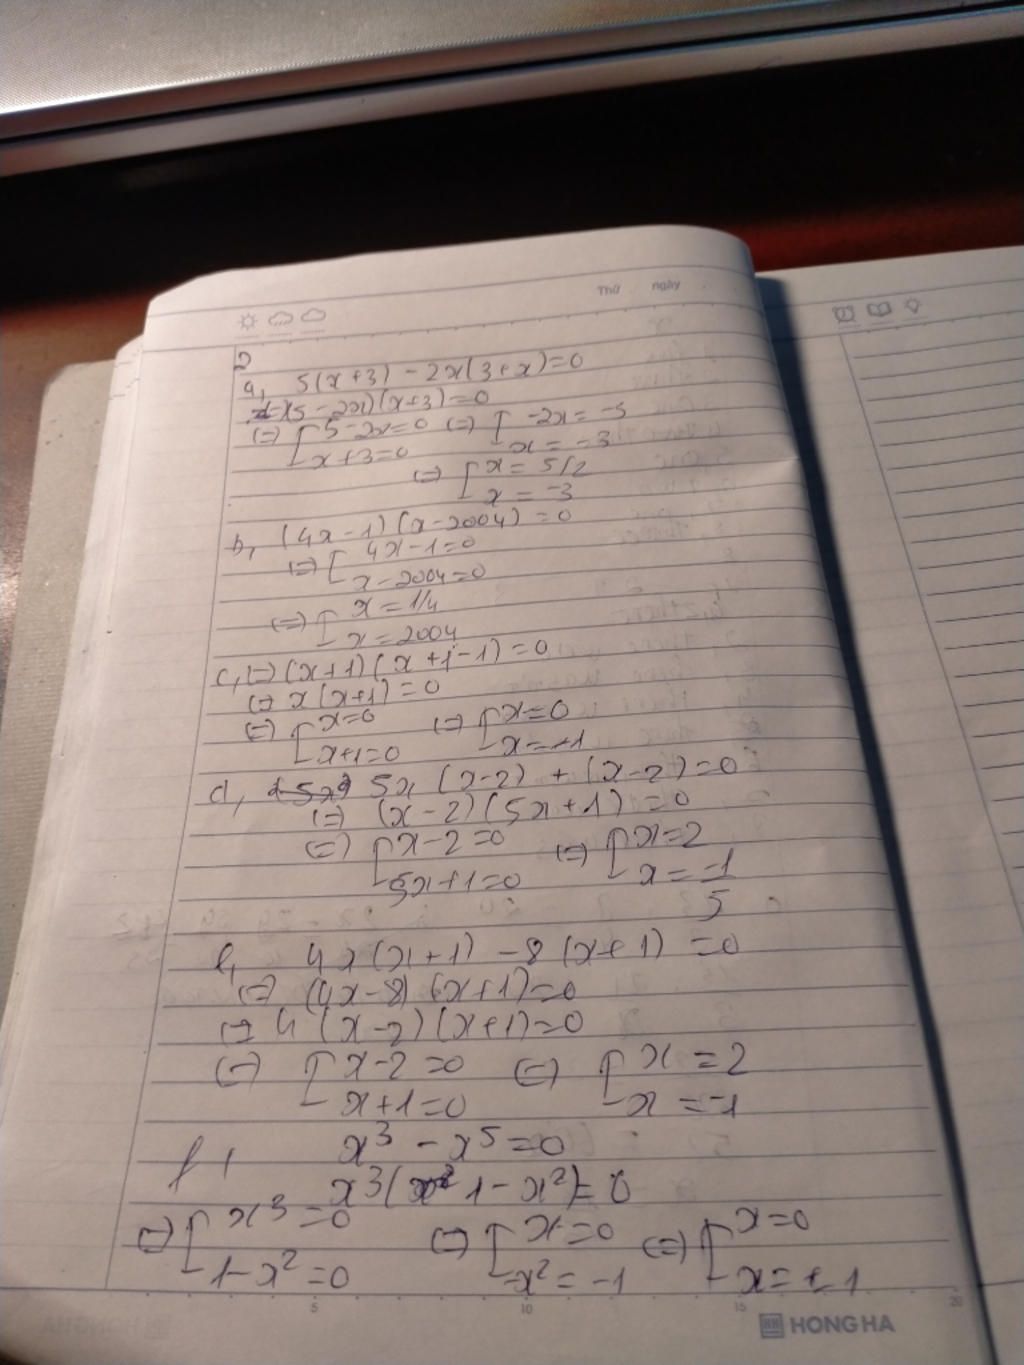 Thứ ngày
2
a, 5(x+3) - 2x(3+x)=0
(5-2x)(x+3)=0
(=) [ 5-2x=0 (=) [ -2x=-5
x+3=0 x=-3
(=) [ x = 5/2
x = -3
b, (4x-1)(x-2004)=0
(=) [ 4x-1=0
x-2004=0
(=) [ x=1/4
x=2004
c, (=) (x+1)(x+1-1)=0
(=) x(x+1)=0
(=) [ x=0 (=) [ x=0
x+1=0 x=-1
d, 5x(x-2)+(x-2)=0
(=) (x-2)(5x+1)=0
(=) [ x-2=0 (=) [ x=2
5x+1=0 x=-1/5
e, 4x(x+1)-8(x+1)=0
(=) (4x-8)(x+1)=0
(=) 4(x-2)(x+1)=0
(=) [ x-2=0 (=) [ x=2
x+1=0 x=-1
f, x³-x⁵=0
x³(1-x²)=0
(=) [ x³=0 (=) [ x=0 (=) [ x=0
1-x²=0 -x²=-1 x=±1
5 10 15 20
HONG HA